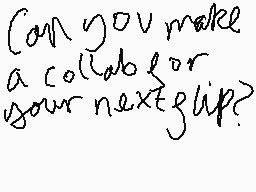 Can you make
a collab for
your next flip?